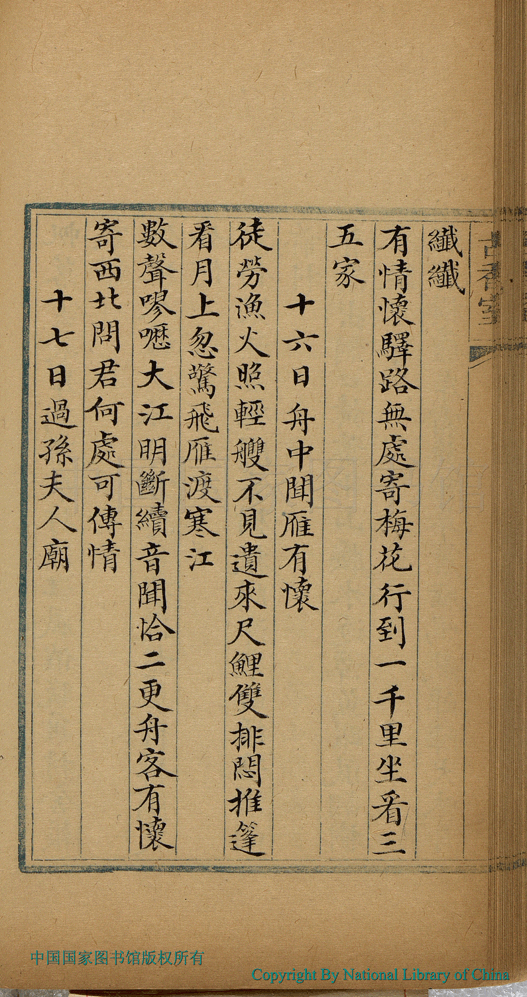 古香室
纖纖
有情懷驛路無處寄梅花行到一千里坐看三
五家
十六日舟中聞雁有懷
徒勞漁火照輕艘不見遺來尺鯉雙排悶推篷
看月上忽驚飛雁渡寒江
數聲嘐嚦大江明斷續音聞恰二更舟客有懷
寄西北問君何處可傳情
十七日過孫夫人廟
中国国家图书馆版权所有
Copyright By National Library of China